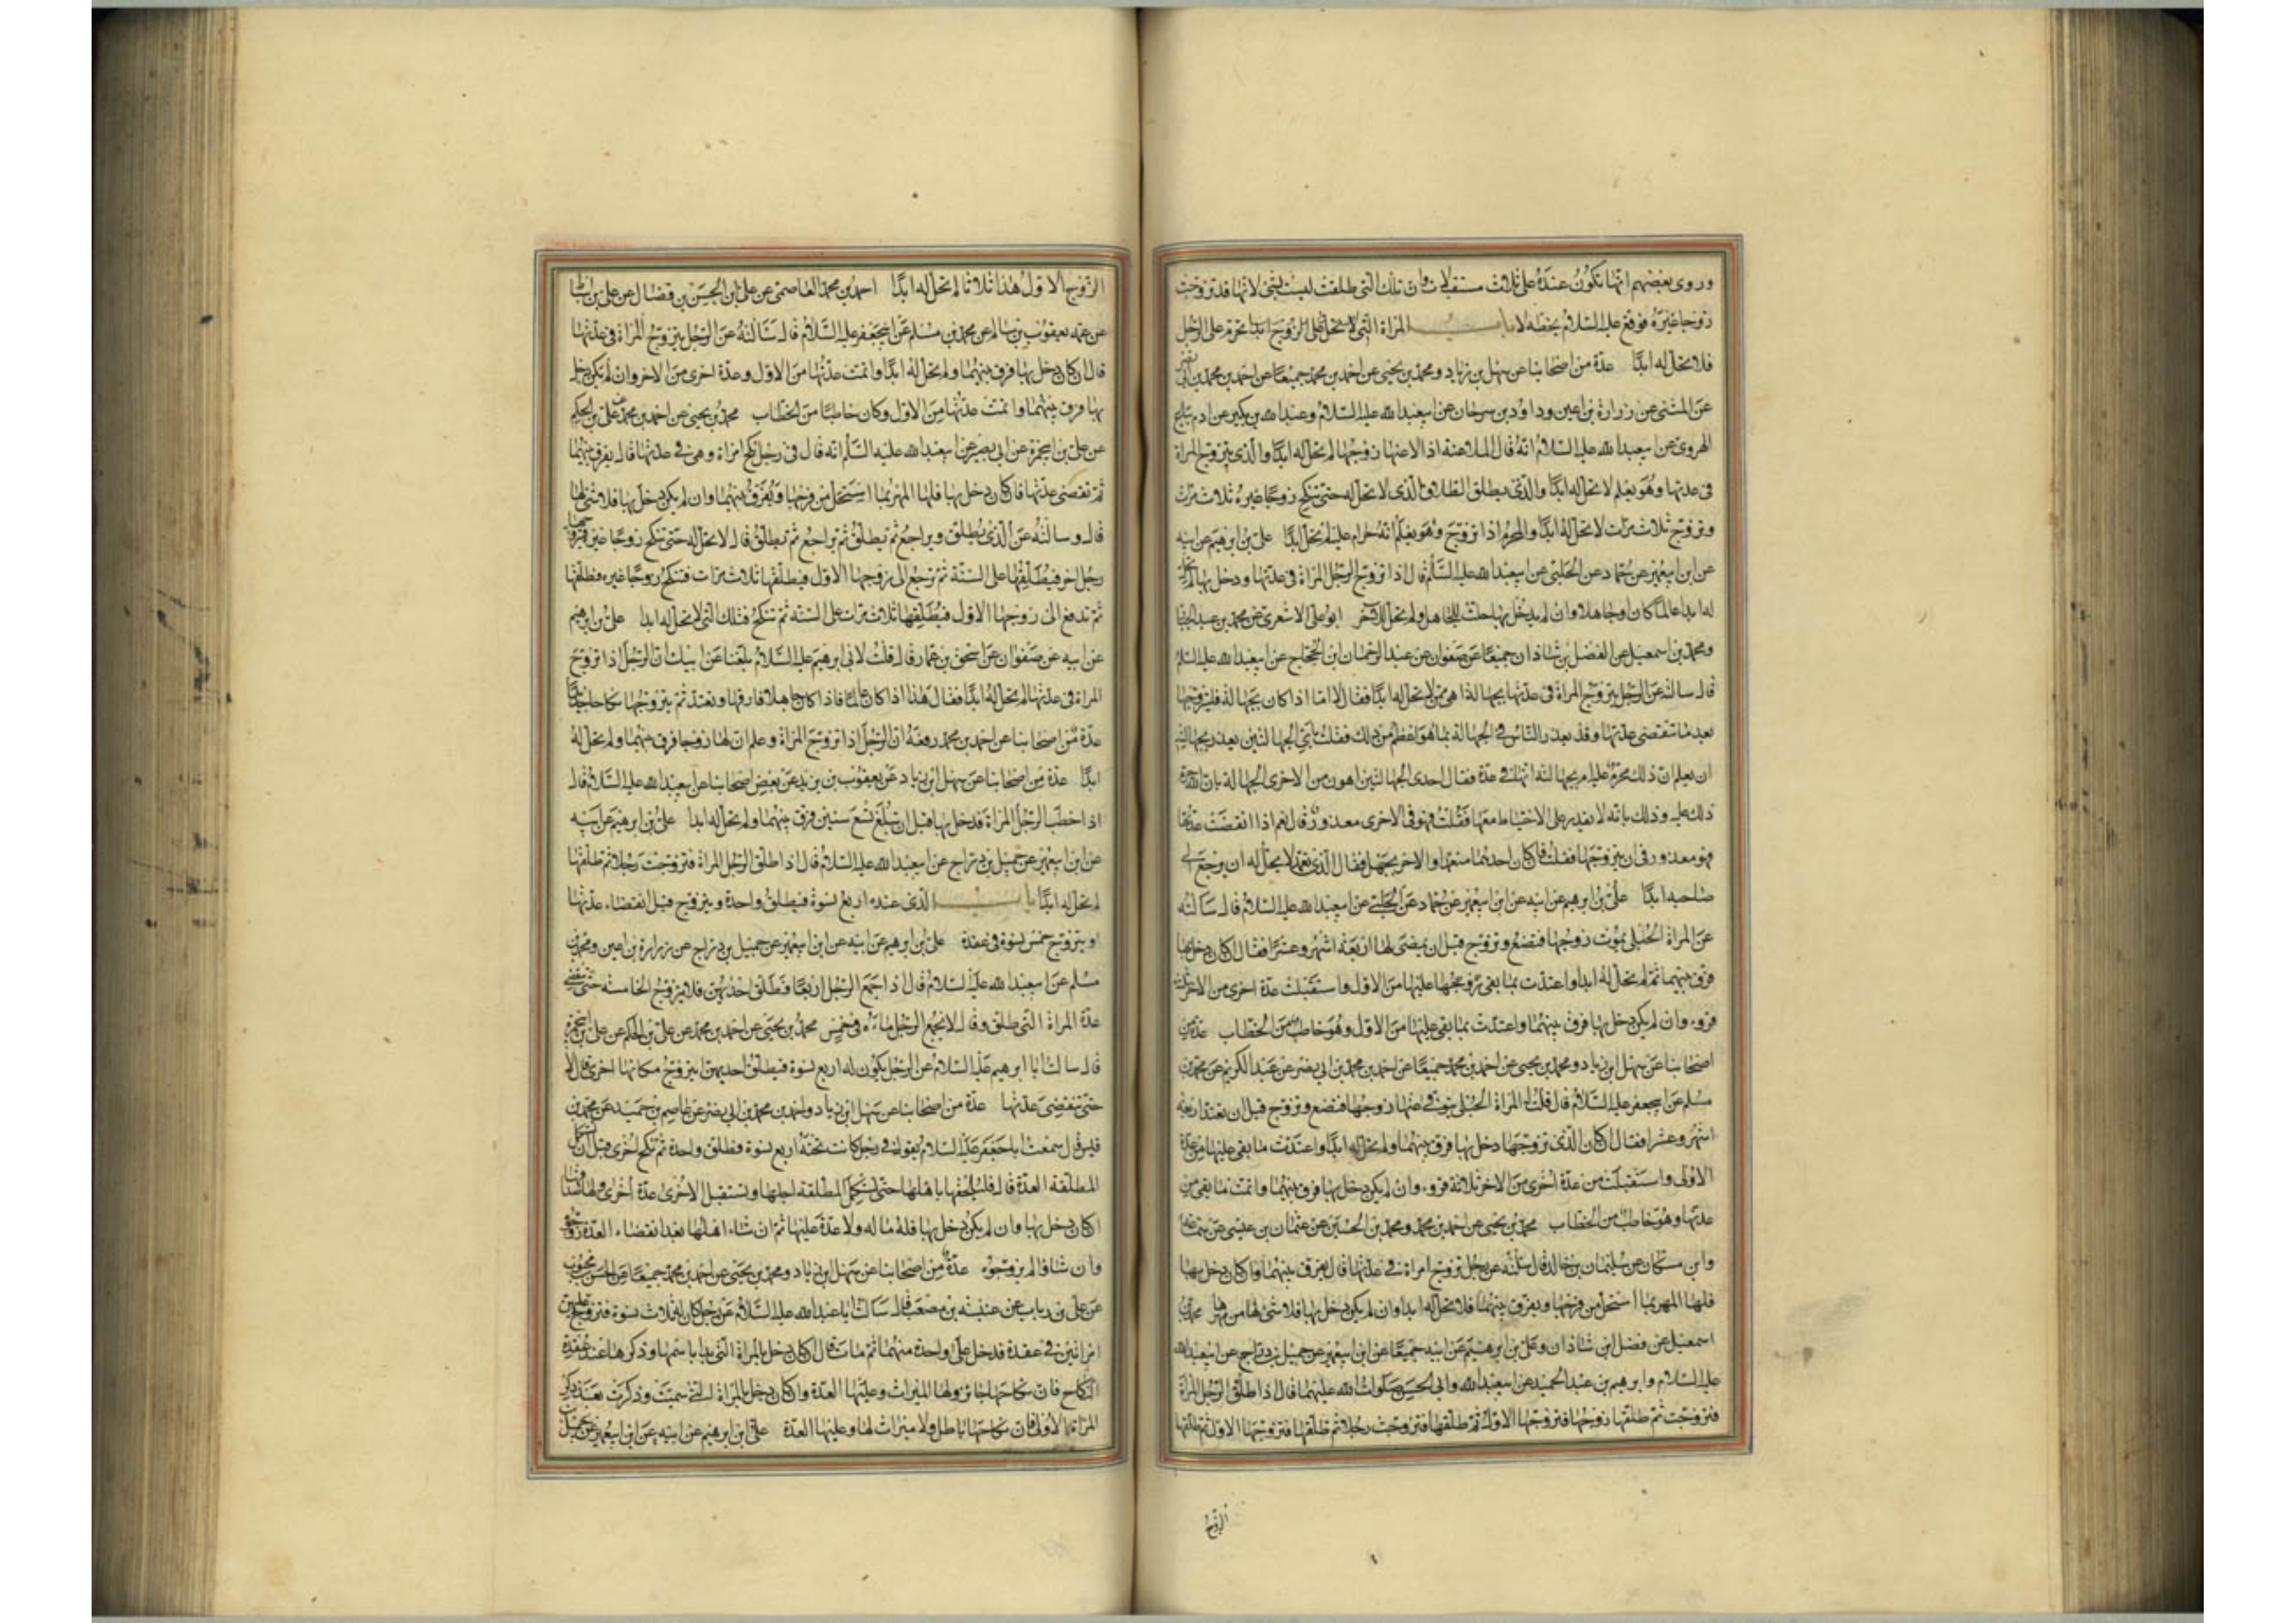 وروى بعضهم انها تكون عنده على ثلاث مستقبلات وان تلك التي طلقت ليست بشئ لانها قد تزوجت
زوجا غيره فوقع عليه السلام بخطه لا باب المراة التي لا تحل على الرجل ابدا تحرم على الرجل
فلا تحل له ابدا عدة من اصحابنا عن سهل بن زياد ومحمد بن يحيى عن احمد بن محمد جميعا عن احمد بن محمد بن ابي نصر
عن المثنى عن زرارة بن اعين وداود بن سرحان عن ابيعبدالله عليه السلام وعبدالله بن بكير عن ادم بياع
الهروي عن ابيعبدالله عليه السلام انه قال الملاعنة اذا لاعنها زوجها لم تحل له ابدا والذي يتزوج المراة
في عدتها وهو يعلم لا تحل له ابدا والذي يطلق الطلاق الذي لا تحل له حتى تنكح زوجا غيره ثلاث مرات
وتزوج ثلاث مرات لا تحل له ابدا والمحرم اذا تزوج وهو يعلم انه حرام عليه لم تحل ابدا علي بن ابرهيم عن ابيه
عن ابن ابيعمير عن حماد عن الحلبي عن ابيعبدالله عليه السلم قال اذا تزوج الرجل المراة في عدتها ودخل بها لم تحل
له ابدا عالما كان او جاهلا وان لم يدخل بها حلت للجاهل ولم تحل للاخر ابو علي الاشعري عن محمد بن عبدالجبار
ومحمد بن اسمعيل عن الفضل بن شاذان جميعا عن صفوان عن عبدالرحمان ابن الحجاج عن ابيعبدالله عليه السلم
قال سالته عن الرجل يتزوج المراة في عدتها بجهالة اهي ممن لا تحل له ابدا فقال لا اما اذا كان بجهالة فليتزوجها
بعد ما تنقضي عدتها وقد يعذر الناس في الجهالة بما هو اعظم من ذلك فقلت باي الجهالتين يعذر بجهالته
ان يعلم ان ذلك محرم عليه ام بجهالته انها في عدة فقال احدى الجهالتين اهون من الاخرى الجهالة بان الله حرم
ذلك عليه وذلك بانه لا يقدر على الاحتياط معها فقلت فهو في الاخرى معذور قال نعم اذا انقضت عدتها
فهو معذور في ان يتزوجها فقلت فان كان احدهما متعمدا والاخر بجهل فقال الذي تعمد لا يحل له ان يرجع الى
صاحبه ابدا علي بن ابرهيم عن ابيه عن ابن ابيعمير عن حماد عن الحلبي عن ابيعبدالله عليه السلام قال سالته
عن المراة الحبلى يموت زوجها فتضع وتزوج قبل ان يمضى لها اربعة اشهر وعشرا فقال ان كان دخل بها
فرق بينهما ثم لم تحل له ابدا واعتدت بما بقى عليها من الاول واستقبلت عدة اخرى من الاخر ثلثة
قروء وان لم يكن دخل بها فرق بينهما واعتدت بما بقى عليها من الاول وهو خاطب من الخطاب عدة من
اصحابنا عن سهل ابن زياد ومحمد بن يحيى عن احمد بن محمد جميعا عن احمد بن محمد بن ابي نصر عن عبدالكريم عن محمد بن
مسلم عن ابيجعفر عليه السلام قال قلت له المراة الحبلى يتوفى عنها زوجها فتضع وتزوج قبل ان تعتد اربعة
اشهر وعشرا فقال ان كان الذي تزوجها دخل بها فرق بينهما ولم تحل له ابدا واعتدت ما بقى عليها من عدة
الاولى واستقبلت من عدة اخرى من الاخر ثلاثة قروء وان لم يكن دخل بها فرق بينهما واتمت ما بقى من
عدتها وهو خاطب من الخطاب محمد بن يحيى عن احمد بن محمد ومحمد بن الحسين عن عثمان بن عيسى عن سماعة
وابن مسكان عن سليمان بن خالد قال سئلته عن رجل تزوج امراة في عدتها قال يفرق بينهما وان كان دخل بها
فلها المهر بما استحل من فرجها ويفرق بينهما فلا تحل له ابدا وان لم يكن دخل بها فلا شئ لها من مهرها محمد بن
اسمعيل عن فضل ابن شاذان وعلي بن ابرهيم عن ابيه جميعا عن ابن ابيعمير عن جميل بن دراج عن ابيعبدالله
عليه السلام وابرهيم بن عبدالحميد عن ابيعبدالله وابي الحسن صلوات الله عليهما قال اذا طلق الرجل المراة
فتزوجت ثم طلقها زوجها فتزوجها الاول ثم طلقها فتزوجت رجلا ثم طلقها فتزوجها الاول ثم طلقها
الزوج
الزوج الاول هذا ثلاثا لم تحل له ابدا احمد بن محمد العاصمي عن علي ابن الحسن بن فضال عن علي بن اسباط
عن عمه يعقوب بن سالم عن محمد بن مسلم عن ابيجعفر عليه السلام قال سئالته عن الرجل يتزوج المراة في عدتها
قال ان كان دخل بها فرق بينهما ولم تحل له ابدا واتمت عدتها من الاول وعدة اخرى من الاخر وان لم يكن دخل
بها فرق بينهما واتمت عدتها من الاول وكان خاطبا من الخطاب محمد بن يحيى عن احمد بن محمد عن علي بن الحكم
عن علي بن ابيحمزة عن ابي بصير عن ابيعبدالله عليه السلم انه قال في رجل نكح امراة وهي في عدتها قال يفرق بينهما
ثم تقضى عدتها فان كان دخل بها فلها المهر بما استحل من فرجها ويفرق بينهما وان لم يكن دخل بها فلا شئ لها
قال وسالته عن الذي يطلق ويراجع ثم يطلق ثم يراجع ثم يطلق قال لا تحل له حتى تنكح زوجا غيره فيتزوجها
رجل اخر فيطلقها على السنة ثم ترجع الى زوجها الاول فيطلقها ثلاث مرات فتنكح زوجا غيره فطلقها
ثم تدفع الى زوجها الاول فيطلقها ثلاث مرات على السنة ثم تنكح فتلك التي لا تحل له ابدا علي بن ابرهيم
عن ابيه عن صفوان عن اسحق بن عمار قال قلت لابي ابرهيم عليه السلام بلغنا عن ابيك ان الرجل اذا تزوج
المراة في عدتها لم تحل له ابدا فقال هذا اذا كان عالما فاذا كان جاهلا فارقها وتعتد ثم يتزوجها نكاحا جديدا
عدة من اصحابنا عن احمد بن محمد رفعه ان الرجل اذا تزوج المراة وعلم ان لها زوجا فرق بينهما ولم تحل له
ابدا عدة من اصحابنا عن سهل ابن زياد عن يعقوب بن يزيد عن بعض اصحابنا عن ابيعبدالله عليه السلام قال
اذا خطب الرجل المراة فدخل بها قبل ان تبلغ تسع سنين فرق بينهما ولم تحل له ابدا علي بن ابرهيم عن ابيه
عن ابن ابيعمير عن جميل بن دراج عن ابيعبدالله عليه السلام قال اذا طلق الرجل المراة فتزوجت رجلا ثم طلقها
لم تحل له ابدا باب الذي عنده اربع نسوة فيطلق واحدة ويتزوج قبل انقضاء عدتها
او يتزوج خمس نسوة في عقدة علي بن ابرهيم عن ابيه عن ابن ابيعمير عن جميل بن دراج عن زرارة بن اعين ومحمد بن
مسلم عن ابيعبدالله عليه السلام قال اذا جمع الرجل اربعا فطلق احديهن فلا يتزوج الخامسة حتى تنقضي
عدة المراة التي طلق وقال لا يجمع الرجل ماءه في خمس محمد بن يحيى عن احمد بن محمد عن علي بن الحكم عن علي بن ابيحمزة
قال سالت ابا ابرهيم عليه السلام عن الرجل يكون له اربع نسوة فيطلق احديهن ايتزوج مكانها اخرى قال لا
حتى تنقضى عدتها عدة من اصحابنا عن سهل ابن زياد واحمد بن محمد بن ابي نصر عن عاصم بن حميد عن محمد بن
قيس قال سمعت اباجعفر عليه السلام يقول في رجل كانت تحته اربع نسوة فطلق واحدة ثم نكح اخرى قبل ان تستكمل
المطلقة العدة قال فليلحقها باهلها حتى تستكمل المطلقة اجلها وتستقبل الاخرى عدة اخرى ولها صداقها
ان كان دخل بها وان لم يكن دخل بها فله ماله ولا عدة عليها ثم ان شاء اهلها بعد انقضاء العدة زوجوه
وان شاؤا لم يزوجوه عدة من اصحابنا عن سهل ابن زياد ومحمد بن يحيى عن احمد بن محمد جميعا عن الحسن بن محبوب
عن علي بن رباب عن عنبسة بن مصعب قال سالت اباعبدالله عليه السلام عن رجل كان له ثلاث نسوة فتزوج عليهن
امراتين في عقدة فدخل على واحدة منهما ثم مات قال ان كان دخل بالمراة التي بدا باسمها وذكرها عند عقدة
النكاح فان نكاحها جائز ولها الميراث وعليها العدة وان كان دخل بالمراة التي سميت وذكرت بعد ذكر
المراة الاولى فان نكاحها باطل ولا ميراث لها وعليها العدة علي ابن ابرهيم عن ابيه عن ابن ابيعمير عن جميل